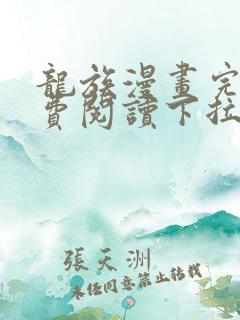 龍族漫畫完
費閱讀下拉
張天洲
未經同意禁止轉載